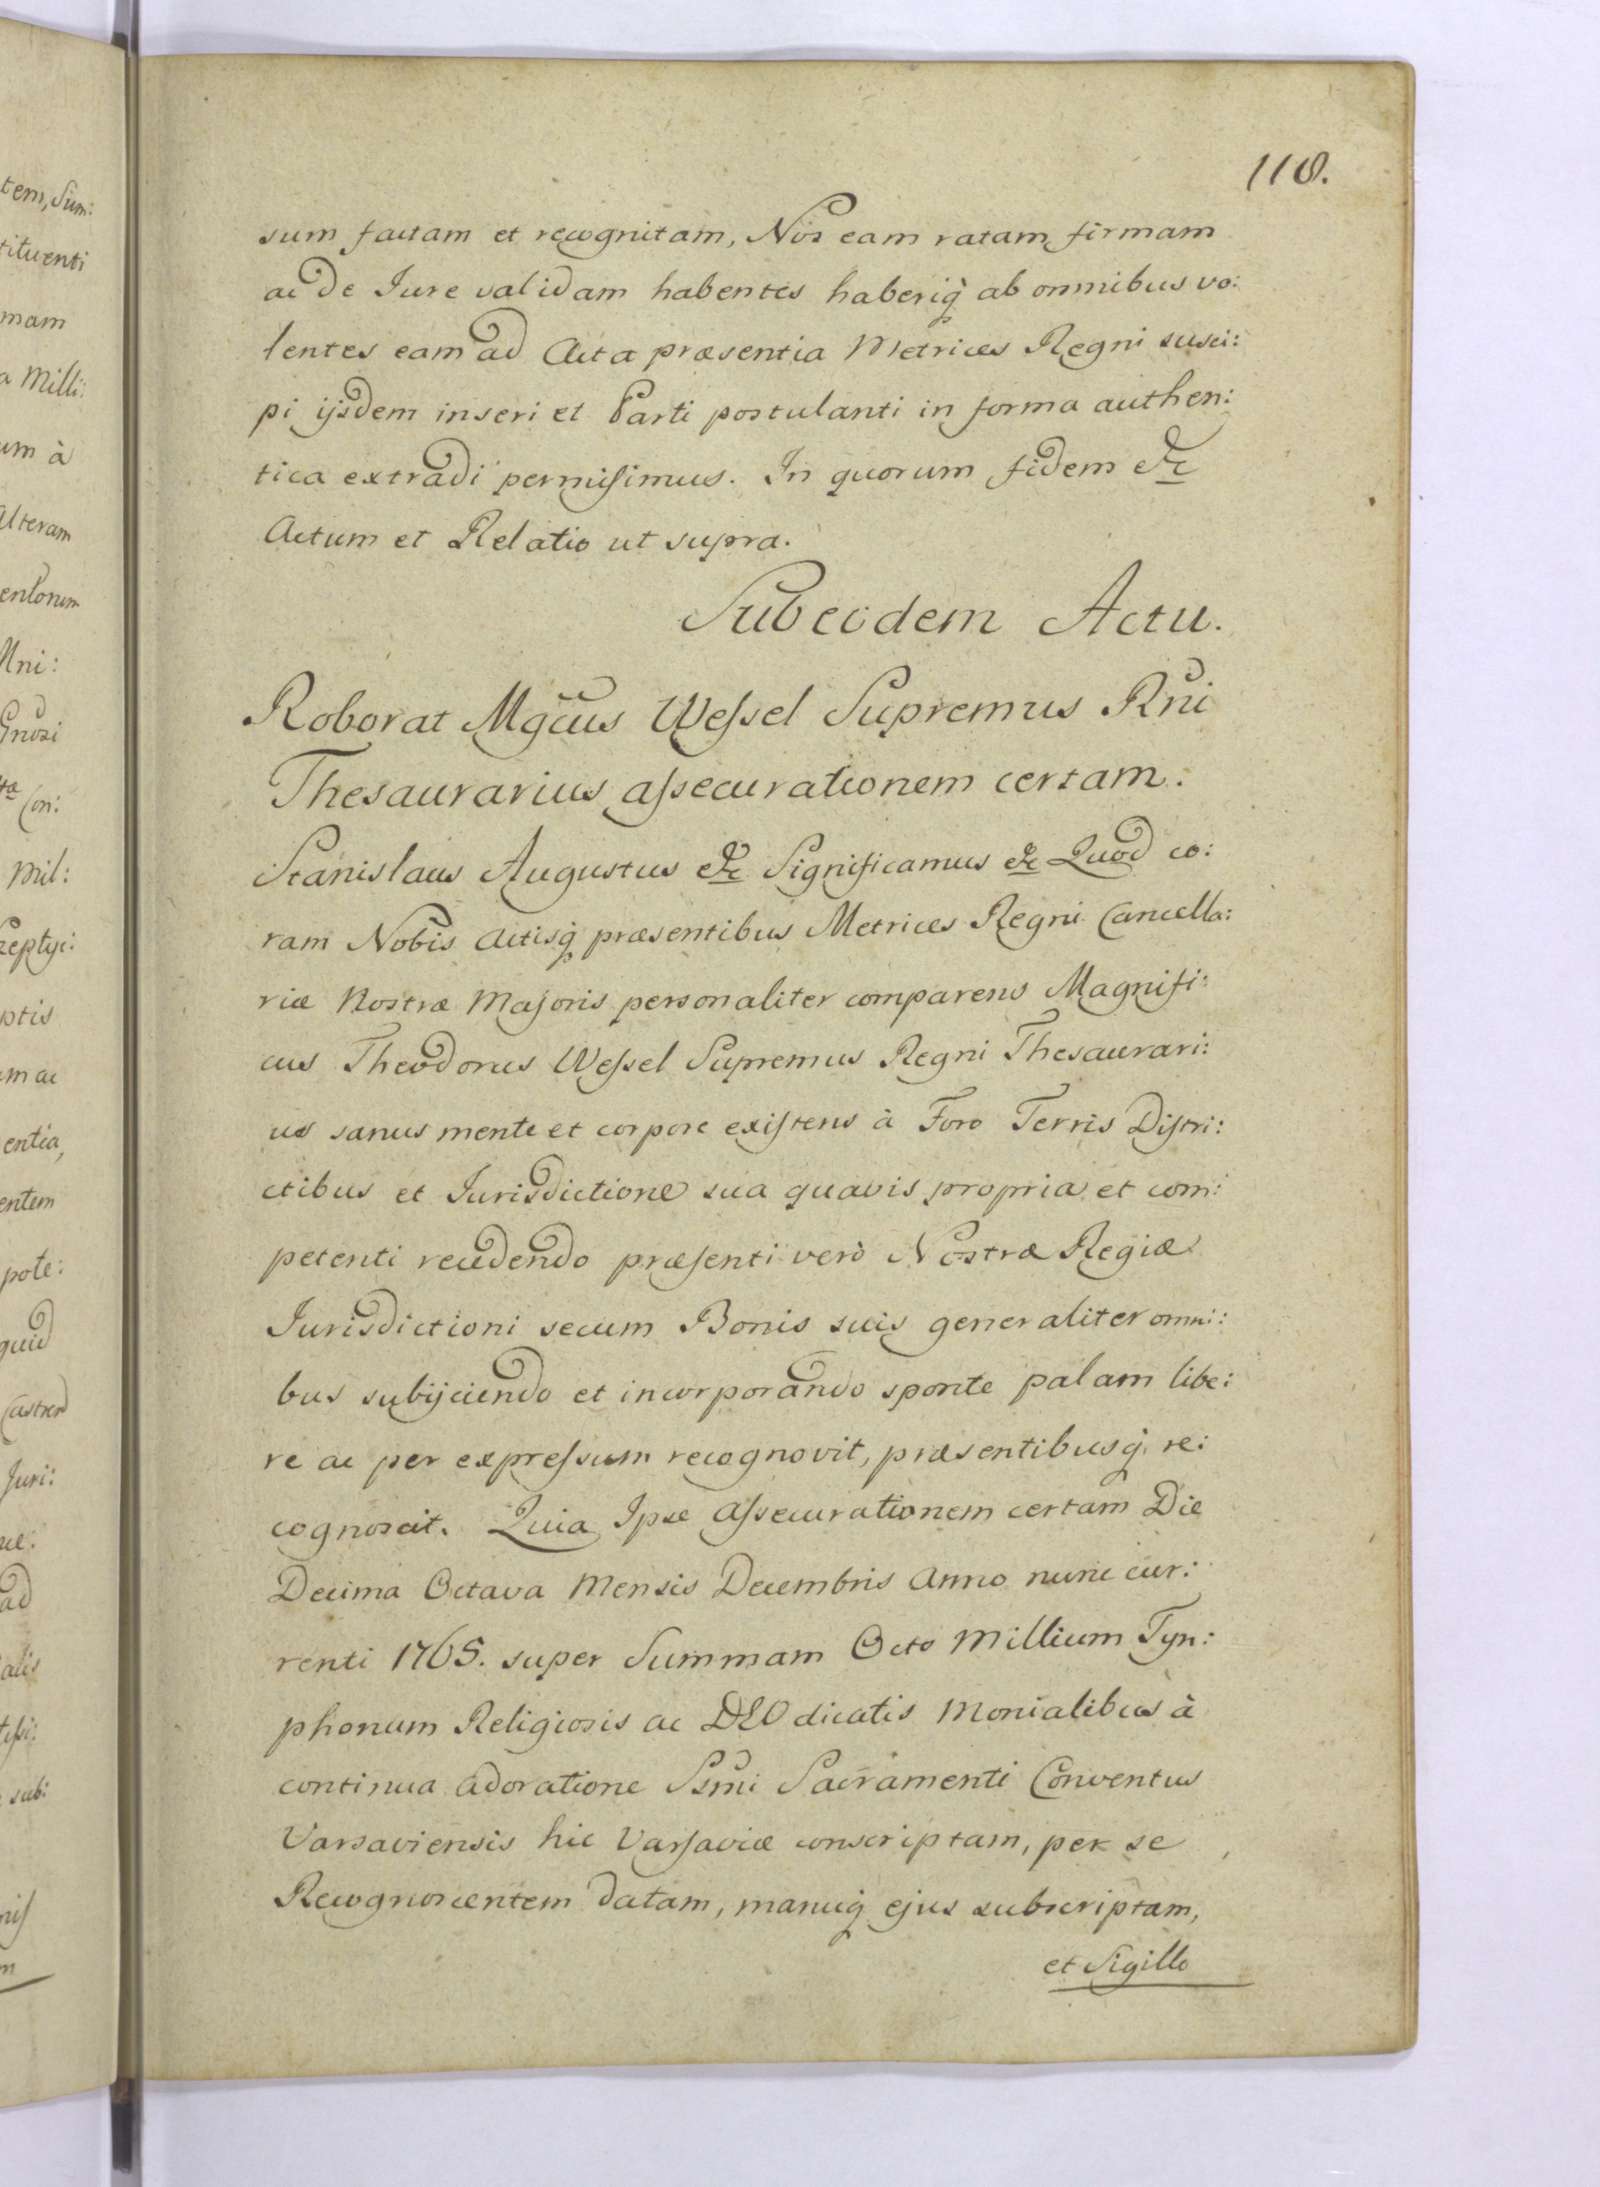 110.
sum factam et recognitam, Nos eam ratam firmam
ac de Iure validam habentes haberiq̃ ab omnibus vo:
lentes eam ad Acta præsentia Metrices Regni susci:
pi ijsdem inseri et Parti postulanti in forma authen:
tica extradi permisimus. In quorum fidem &c
Actum et Relatio ut supra.
Sub eodem Actu.
Roborat Mgcus Wessel Supremus Rni
Thesaurarius assecurationem certam.
Stanislaus Augustus &c Significamus &c Quod co:
ram Nobis Actisq̃ præsentibus Metrices Regni Cancella:
riæ Nostræ Majoris personaliter comparens Magnifi:
cus Theodorus Wessel Supremus Regni Thesaurari:
us sanus mente et corpore existens à Foro Terris Distri:
ctibus et Jurisdictione sua quavis propria et com:
petenti recedendo præsenti verò Nostræ Regiæ
Jurisdictioni secum Bonis suis generaliter omni:
bus subijciendo et incorporando sponte palam libe:
re ac per expressum recognovit, præsentibusq̃ re:
cognoscit. Quia Ipse Assecurationem certam Die
Decima Octava Mensis Decembris Anno nunc cur:
renti 1765. super Summam Octo Millium Tyn:
phonum Religiosis ac DEO dicatis Monialibus à
continua Adoratione Ssmi Sacramenti Conventus
Varsaviensis hic Varsaviæ conscriptam, per se
Recognoscentem datam, manuq̃ ejus subscriptam,
et Sigillo